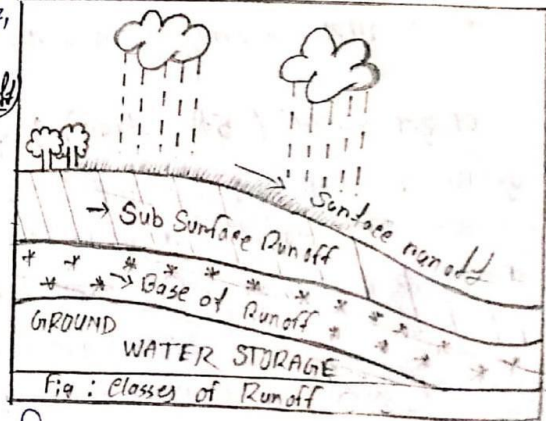 Surface runoff
→ Sub Surface Runoff
→ Base of Runoff
GROUND
WATER STORAGE
Fig : Classes of Runoff